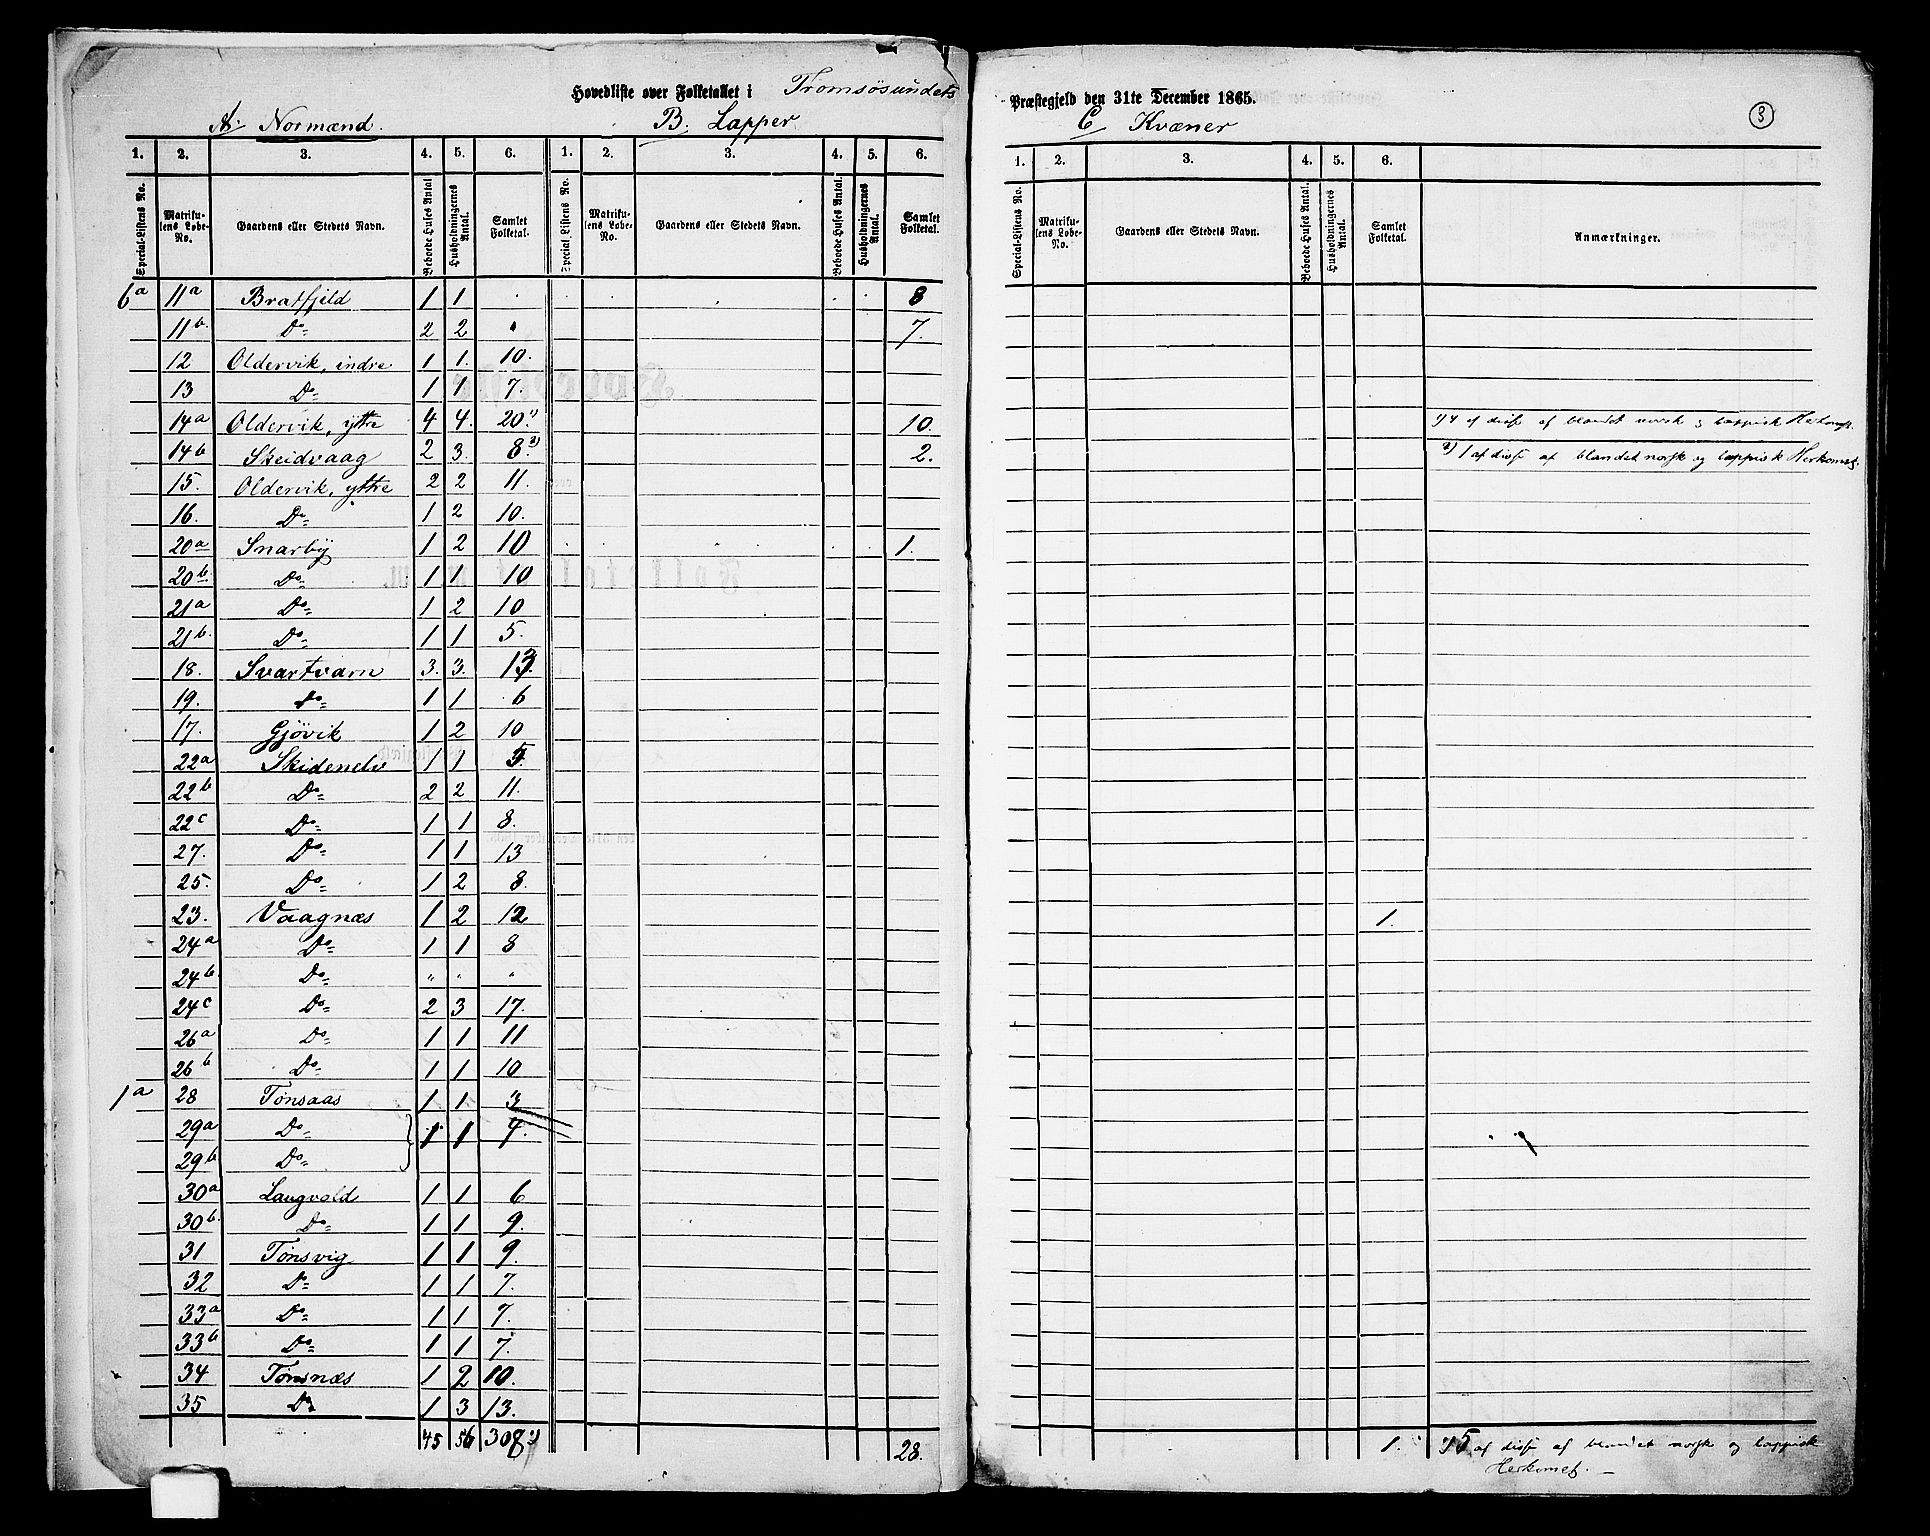 Hovedliste over Folketallet i Tromsösundets Præstegjeld den 31te December 1865.
A. Normænd. B. Lapper C Kvæner 3
1. 2. 3. 4. 5. 6. 1. 2. 3. 4. 5. 6. 1. 2. 3. 4. 5. 6.
Special-Listens No. Matrikulens Løbe-No. Gaardens eller Stedets Navn. Beboede Huses Antal Husholdningernes Antal. Samlet Folketal. Special-Listens No. Matrikulens Løbe-No. Gaardens eller Stedets Navn. Beboede Huses Antal. Husholdningernes Antal. Samlet Folketal. Special-Listens No. Matrikulens Løbe-No. Gaardens eller Stedets Navn. Beboede Huses Antal. Husholdningernes Antal. Samlet Folketal. Anmærkninger.
6a 11a Bratfjeld 1 1 . 8
11b. Do 2 2 " 7.
12 Oldervik, indre 1 1. 10.
13 Do 1 1 7.
14a Oldervik, yttre 4 4. 20.1) 10. 1) 4 af disse af blandet norsk og lappisk Herkomst.
14b Skeidvaag 2 3. 8.2) 2. 2) 1 af disse af blandet norsk og lappisk Herkomst.
15. Oldervik, yttre 2 2 11.
16. Do 1 2 10.
20a Snarby 1 2 10 1.
20b. Do 1 1 10
21a Do 1 2 10
21b. Do 1 1 5.
18. Svartvarn 3. 3. 13.
19. Do 1 1 6
17. Gjövik 1 2 10
22a Skidenelv 1 1 5.
22b Do 2 2 11.
22c Do 1 1 8.
27. Do 1 1 13
25. Do 1 2 8.
23. Vaagnæs 1 2 12 1.
24a Do 1 1 8
24b Do " " "
24c Do 2 3 17.
26a Do 1 1 11
26b Do 1 1 10
1a 28 Tonsaas 1 1 3
29a Do 1 1 4.
29b Do
30a Langvold 1 1 6
30b. Do 1 1 9.
31 Tonsvig 1 1 9.
32 Do 1 1 7.
33a Do 1 1 7.
33b Do 1 1 7.
34 Tonsnæs 1 2 10.
35 Do 1 3 13.
45 56 308 1) 28. 1. 1) 5 af disse af blandet norsk og lappisk
Herkomst.